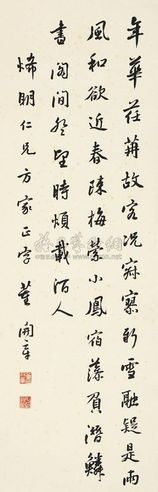 年華荏苒故客況寂寥新雪融疑是雨
風和欲近春疎梅縈小鳳宿藻負潛鱗
書閣閒登望時煩載酒人
烯明仁兄方家正字 董開章